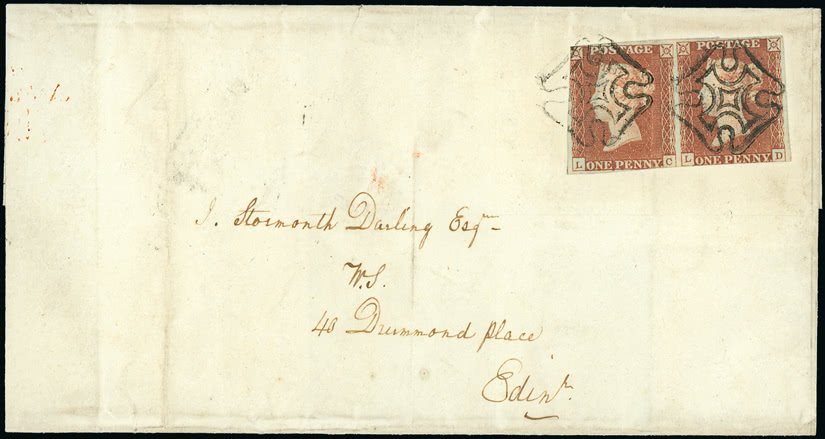 POSTAGE POSTAGE
L ONE PENNY C L ONE PENNY D
J. Stormonth Darling Esqr
W.S.
40 Drummond place
Edinr.